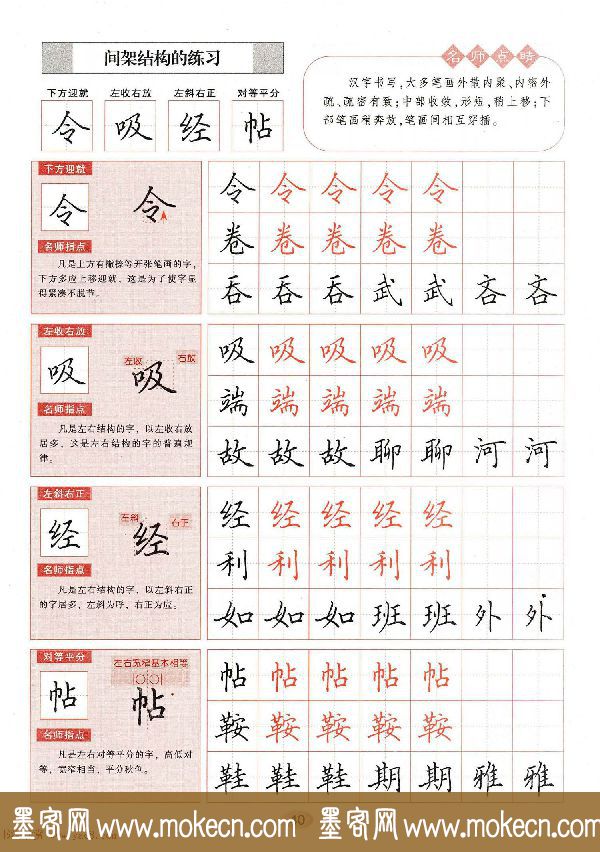 间架结构的练习
名师点睛
汉字书写，大多笔画外散内聚、内缩外
疏、疏密有致；中部收敛，形短，稍上移；下
部笔画稍奔放，笔画间相互穿插。
下方迎就 左收右放 左斜右正 对等平分
令 吸 经 帖
下方迎就
令 令
名师指点
凡是上方有撇捺等开张笔画的字，
下方多应上移迎就，这是为了使字显
得紧凑不脱节。
令 令 令 令 令
卷 卷 卷 卷 卷
吞 吞 吞 武 武 吝 吝
左收右放
吸 左收 吸 右放
名师指点
凡是左右结构的字，以左收右放
居多，这是左右结构的字的普遍规
律。
吸 吸 吸 吸 吸
端 端 端 端 端
故 故 故 聊 聊 河 河
左斜右正
经 左斜 经 右正
名师指点
凡是左右结构的字，以左斜右正
的字居多，左斜为呼，右正为应。
经 经 经 经 经
利 利 利 利 利
如 如 如 班 班 外 外
对等平分
左右宽窄基本相等
帖 帖
名师指点
凡是左右对等平分的字，高低对
等，宽窄相当，平分秋色。
帖 帖 帖 帖 帖
鞍 鞍 鞍 鞍 鞍
鞋 鞋 鞋 期 期 雅 雅
10
墨客网 www.mokecn.com 墨客网 www.mokecn.com